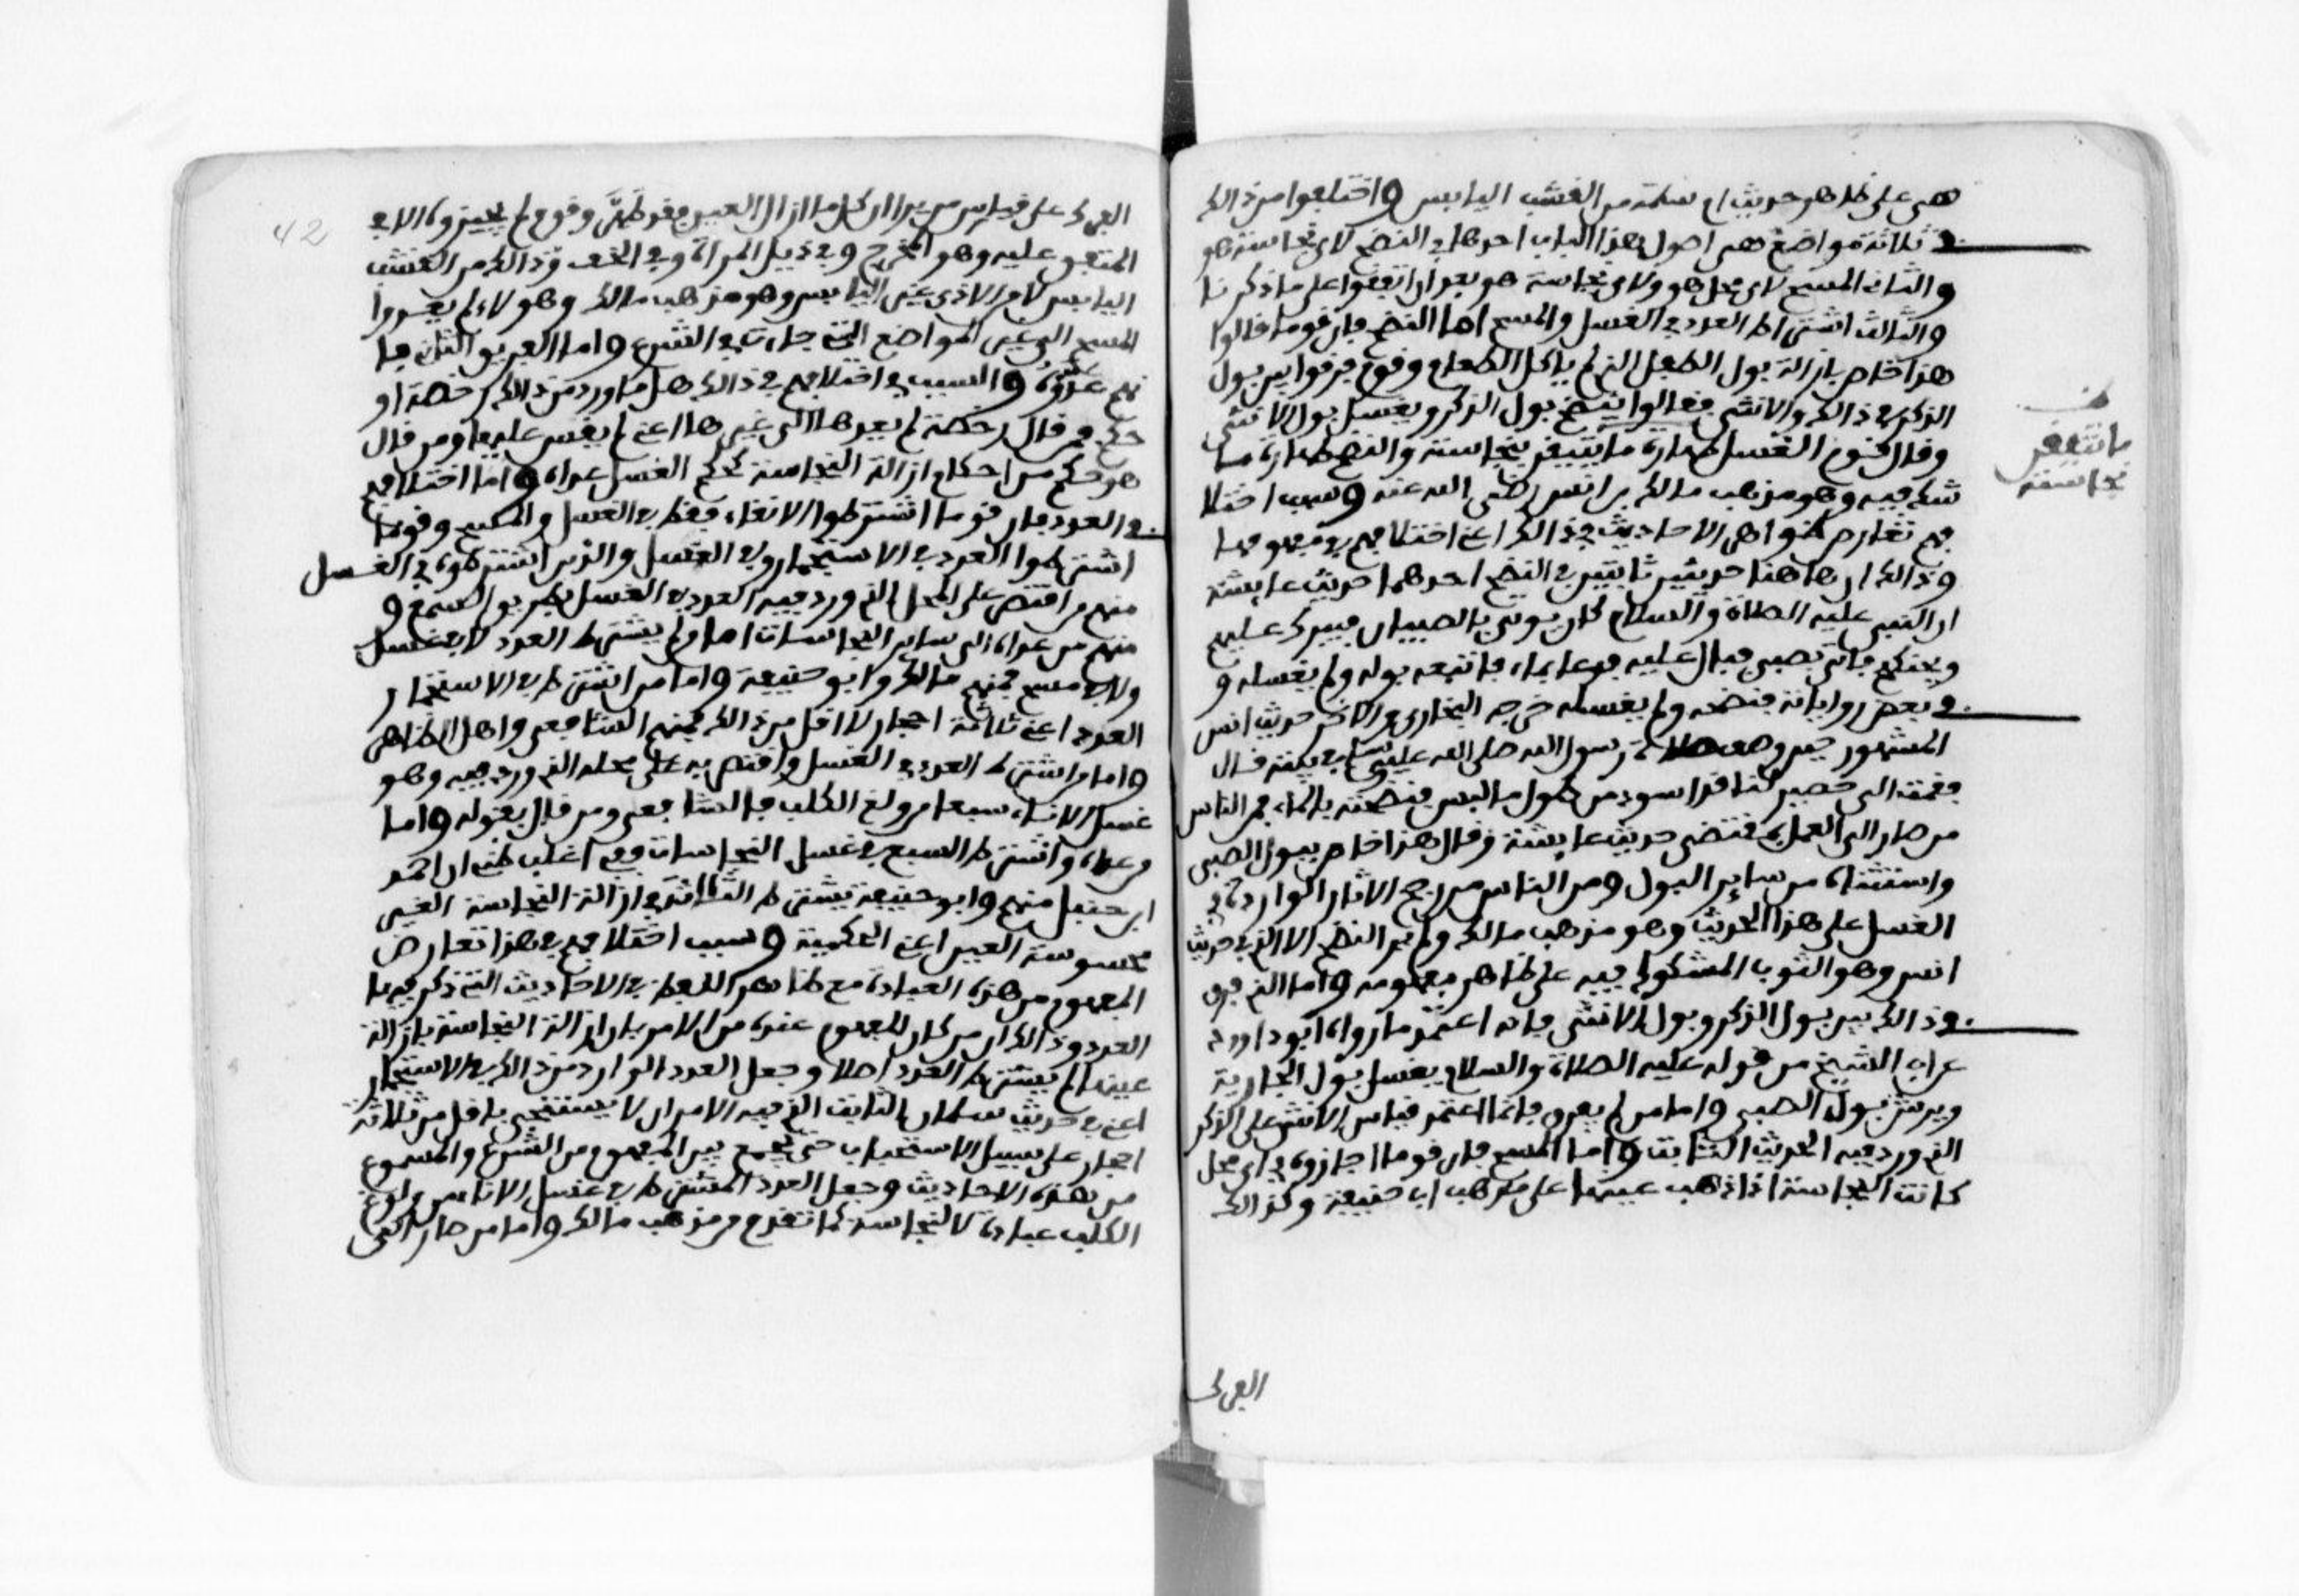 هي على ظاهر حديث ام سلمة من القشب اليابس واختلفوا من ذالك
في ثلاثة مواضع هي اصول هذا الباب احدها في النضح لاي نجاسة هو
والثاني المسح لاي محل هو ولاي نجاسة هو بعد ان اتفقوا على ما ذكرنا
والثالث اشتراط العدد في الغسل والمسح اما النضح فان قوما قالوا
هذا خاص بازالة بول الطفل الذي لم ياكل الطعام وقوم فرقوا بين بول
الذكر في ذالك والانثى فقالوا ينضح بول الذكر ويغسل بول الانثى
وقال قوم الغسل طهارة ما يتيقن بنجاسة والنضح طهارة ما
شك فيه وهو مذهب مالك بن انس رضي الله عنه وسبب اختلا
فهم تعارض ظواهر الاحاديث في ذالك اعني اختلافهم في مفهومها
وذالك ان هاهنا حديثين ثابتين في النضح احدهما حديث عايشة
ان النبي عليه الصلاة والسلام كان يوتى بالصبيان فيبرك عليهم
ويحنكهم فاتي بصبي فبال عليه فدعا بماء فاتبعه بوله ولم يغسله و
في بعض رواياته فنضحه ولم يغسله خرجه البخاري والاخر حديث انس
المشهور حين وصف صلاة رسول الله صلى الله عليه وسلم في بيته قال
فقمت الى حصير لنا قد اسود من طول ما لبس فنضحته بالماء فمن الناس
من صار الى العمل بمقتضى حديث عايشة وقال هذا خاص ببول الصبي
واستثناه من ساير البول ومن الناس من رجح الاثار الواردة في
الغسل على هذا الحديث وهو مذهب مالك ولم ير النضح الا الذي في حديث
انس وهو الثوب المشكوك فيه على ظاهر مفهومه واما الذي فرق
في ذالك بين بول الذكر وبول الانثى فانه اعتمد ما رواه ابو داوود
عن ابي السمح من قوله عليه الصلاة والسلام يغسل بول الجارية
ويرش بول الصبي واما من لم يفرق فانما اعتمد قياس الانثى على الذكر
الذي ورد فيه الحديث الثابت واما المسح فان قوما اجازوه في اي محل
كانت النجاسة اذا ذهب عينها على مذهب ابي حنيفة وكذالك
الفرك
ما تتيقن
نجاسته
42
الفرك على قياس من يرا ان كل ما ازال العين فقد طهر وقوم لم يجيزوه الا في
المتفق عليه وهو المخرج وفي ذيل المراة وفي الخف وذالك من القشب
اليابس لا من الاذى غير اليابس وهو مذهب مالك وهولاء لم يعدوا
المسح الى غير المواضع التي جاءت في الشرع واما الفريق الثاني فا
نهم عدوه والسبب في اختلافهم في ذالك هل ما ورد من ذالك رخصة او
حكم فمن قال رخصة لم يعدها الى غيرها اعني لم يقس عليها ومن قال
هو حكم من احكام ازالة النجاسة كحكم الغسل عداه واما اختلافهم
في العدد فان قوما اشترطوا الانقاء فقط في الغسل والمسح وقوما
اشترطوا العدد في الاستجمار وفي الغسل والذين اشترطوه في الغسل
منهم من اقتصر على المحل الذي ورد فيه العدد في الغسل بطريق السمع و
منهم من عداه الى ساير النجاسات اما من لم يشترط العدد لا في غسل
ولا في مسح فمنهم مالك وابو حنيفة واما من اشترط في الاستجمار
العدد اعني ثلاثة احجار لا اقل من ذالك فمنهم الشافعي واهل الظاهر
واما من اشترط العدد في الغسل واقتصر به على محله الذي ورد فيه وهو
غسل الاناء سبعا من ولغ الكلب فالشافعي ومن قال بقوله واما
من عداه واشترط السبع في غسل النجاسات ففي اغلب ظني ان احمد
ابن حنبل منهم وابو حنيفة يشترط الثلاثة في ازالة النجاسة الغير
محسوسة العين اعني الحكمية وسبب اختلافهم في هذا تعارض
المفهوم من هذه العبادة مع ظاهر اللفظ في الاحاديث التي ذكر فيها
العدد وذالك ان من كان المفهوم عنده من الامر بازالة النجاسة بازالة
عينها لم يشترط العدد اصلا وجعل العدد الوارد من ذالك في الاستجمار
اعني في حديث سلمان الثابت الذي فيه الامر ان لا يستنجى باقل من ثلاثة
احجار على سبيل الاستحباب حتى يجمع بين المفهوم من الشرع والمسموع
من هذه الاحاديث وجعل العدد المشترط في غسل الاناء من ولوغ
الكلب عبادة لا لنجاسة كما تقدم من مذهب مالك واما من صار الى